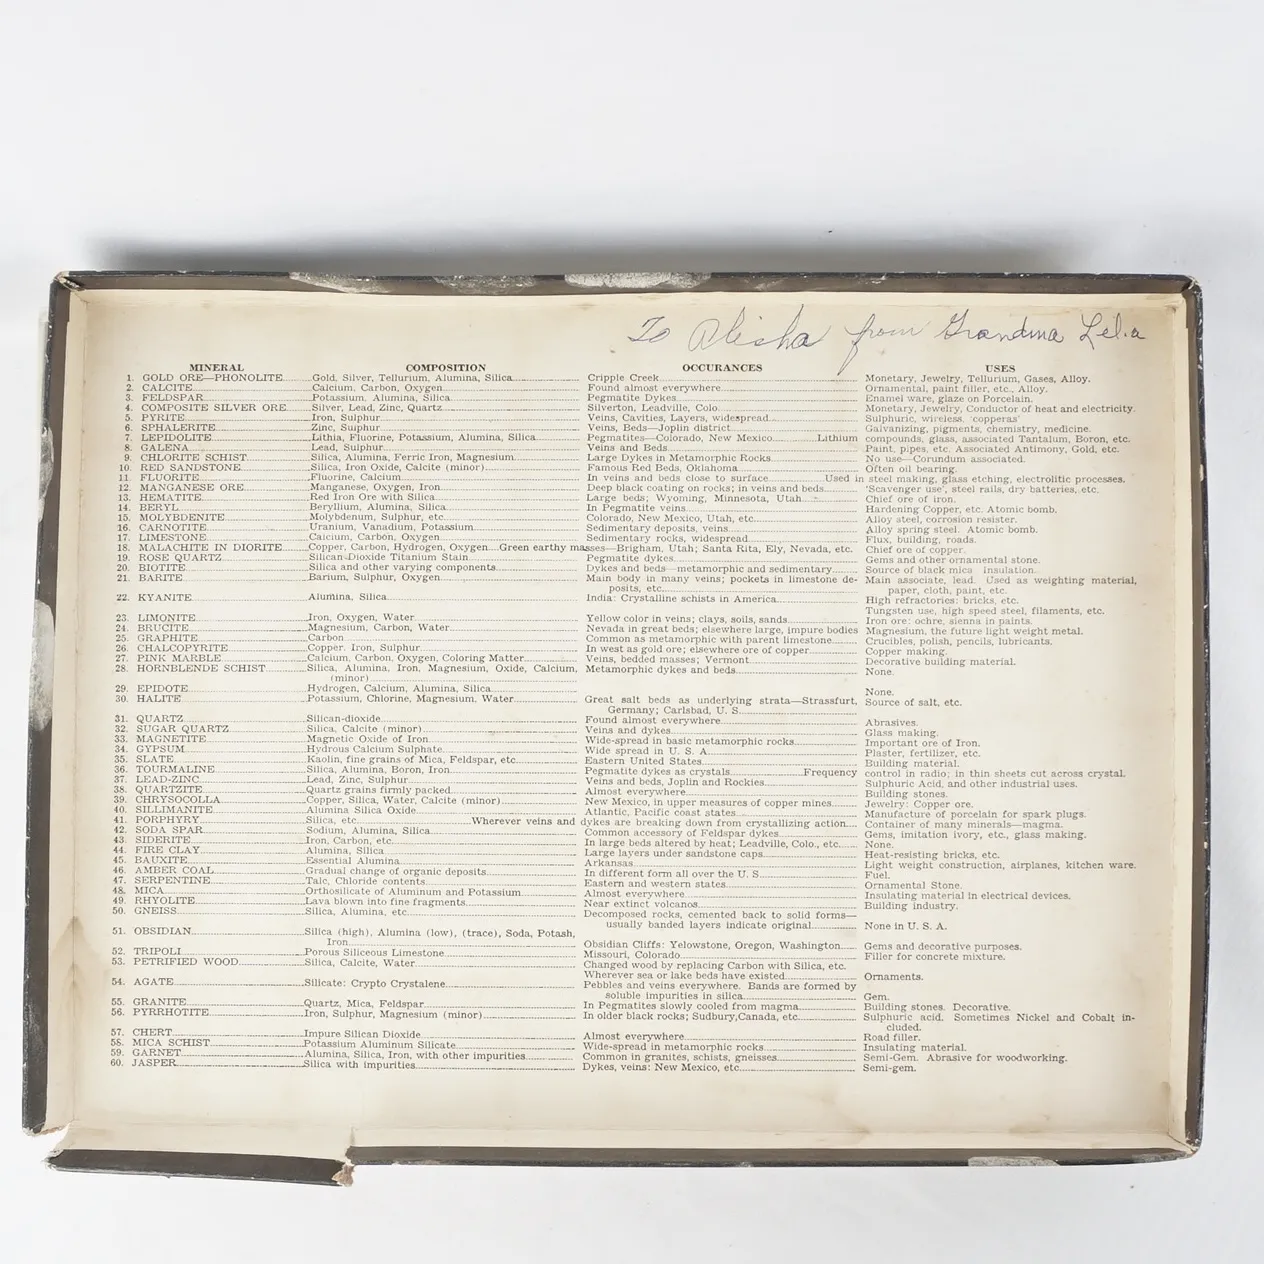 To Alisha from Grandma Lela
MINERAL COMPOSITION OCCURANCES USES
1. GOLD ORE—PHONOLITE Gold, Silver, Tellurium, Alumina, Silica Cripple Creek Monetary, Jewelry, Tellurium, Gases, Alloy.
2. CALCITE Calcium, Carbon, Oxygen Found almost everywhere Ornamental, paint filler, etc., Alloy.
3. FELDSPAR Potassium, Alumina, Silica Pegmatite Dykes Enamel ware, glaze on Porcelain.
4. COMPOSITE SILVER ORE Silver, Lead, Zinc, Quartz Silverton, Leadville, Colo. Monetary, Jewelry, Conductor of heat and electricity.
5. PYRITE Iron, Sulphur Veins, Cavities, Layers, widespread Sulphuric, wireless, 'copperas'
6. SPHALERITE Zinc, Sulphur Veins, Beds—Joplin district Galvanizing, pigments, chemistry, medicine.
7. LEPIDOLITE Lithia, Fluorine, Potassium, Alumina, Silica Pegmatites—Colorado, New Mexico Lithium compounds, glass, associated Tantalum, Boron, etc.
8. GALENA Lead, Sulphur Veins and Beds Paint, pipes, etc. Associated Antimony, Gold, etc.
9. CHLORITE SCHIST Silica, Alumina, Ferric Iron, Magnesium Large Dykes in Metamorphic Rocks No use—Corundum associated.
10. RED SANDSTONE Silica, Iron Oxide, Calcite (minor) Famous Red Beds, Oklahoma Often oil bearing.
11. FLUORITE Fluorine, Calcium In veins and beds close to surface Used in steel making, glass etching, electrolitic processes.
12. MANGANESE ORE Manganese, Oxygen, Iron Deep black coating on rocks; in veins and beds 'Scavenger use', steel rails, dry batteries, etc.
13. HEMATITE Red Iron Ore with Silica Large beds; Wyoming, Minnesota, Utah Chief ore of iron.
14. BERYL Beryllium, Alumina, Silica In Pegmatite veins Hardening Copper, etc. Atomic bomb.
15. MOLYBDENITE Molybdenum, Sulphur, etc. Colorado, New Mexico, Utah, etc. Alloy steel, corrosion resister.
16. CARNOTITE Uranium, Vanadium, Potassium Sedimentary deposits, veins Alloy spring steel. Atomic bomb.
17. LIMESTONE Calcium, Carbon, Oxygen Sedimentary rocks, widespread Flux, building, roads.
18. MALACHITE IN DIORITE Copper, Carbon, Hydrogen, Oxygen Green earthy masses—Brigham, Utah; Santa Rita, Ely, Nevada, etc. Chief ore of copper.
19. ROSE QUARTZ Silican-Dioxide Titanium Stain Pegmatite dykes Gems and other ornamental stone.
20. BIOTITE Silica and other varying components Dykes and beds—metamorphic and sedimentary Source of black mica insulation.
21. BARITE Barium, Sulphur, Oxygen Main body in many veins; pockets in limestone de- Main associate, lead. Used as weighting material,
posits, etc. paper, cloth, paint, etc.
22. KYANITE Alumina, Silica India: Crystalline schists in America High refractories: bricks, etc.
Tungsten use, high speed steel, filaments, etc.
23. LIMONITE Iron, Oxygen, Water Yellow color in veins; clays, soils, sands Iron ore: ochre, sienna in paints.
24. BRUCITE Magnesium, Carbon, Water Nevada in great beds; elsewhere large, impure bodies Magnesium, the future light weight metal.
25. GRAPHITE Carbon Common as metamorphic with parent limestone Crucibles, polish, pencils, lubricants.
26. CHALCOPYRITE Copper, Iron, Sulphur In west as gold ore; elsewhere ore of copper Copper making.
27. PINK MARBLE Calcium, Carbon, Oxygen, Coloring Matter Veins, bedded masses; Vermont Decorative building material.
28. HORNBLENDE SCHIST Silica, Alumina, Iron, Magnesium, Oxide, Calcium, Metamorphic dykes and beds None.
(minor)
29. EPIDOTE Hydrogen, Calcium, Alumina, Silica None.
30. HALITE Potassium, Chlorine, Magnesium, Water Great salt beds as underlying strata—Strassfurt, Source of salt, etc.
Germany; Carlsbad, U. S.
31. QUARTZ Silican-dioxide Found almost everywhere Abrasives.
32. SUGAR QUARTZ Silica, Calcite (minor) Veins and dykes Glass making.
33. MAGNETITE Magnetic Oxide of Iron Wide-spread in basic metamorphic rocks Important ore of Iron.
34. GYPSUM Hydrous Calcium Sulphate Wide spread in U. S. A. Plaster, fertilizer, etc.
35. SLATE Kaolin, fine grains of Mica, Feldspar, etc. Eastern United States Building material.
36. TOURMALINE Silica, Alumina, Boron, Iron Pegmatite dykes as crystals Frequency control in radio; in thin sheets cut across crystal.
37. LEAD-ZINC Lead, Zinc, Sulphur Veins and beds, Joplin and Rockies Sulphuric Acid, and other industrial uses.
38. QUARTZITE Quartz grains firmly packed Almost everywhere Building stones.
39. CHRYSOCOLLA Copper, Silica, Water, Calcite (minor) New Mexico, in upper measures of copper mines Jewelry: Copper ore.
40. SILLIMANITE Alumina Silica Oxide Atlantic, Pacific coast states Manufacture of porcelain for spark plugs.
41. PORPHYRY Silica, etc. Wherever veins and dykes are breaking down from crystallizing action Container of many minerals—magma.
42. SODA SPAR Sodium, Alumina, Silica Common accessory of Feldspar dykes Gems, imitation ivory, etc., glass making.
43. SIDERITE Iron, Carbon, etc. In large beds altered by heat; Leadville, Colo., etc. None.
44. FIRE CLAY Alumina, Silica Large layers under sandstone caps Heat-resisting bricks, etc.
45. BAUXITE Essential Alumina Arkansas Light weight construction, airplanes, kitchen ware.
46. AMBER COAL Gradual change of organic deposits In different form all over the U. S. Fuel.
47. SERPENTINE Talc, Chloride contents Eastern and western states Ornamental Stone.
48. MICA Orthosilicate of Aluminum and Potassium Almost everywhere Insulating material in electrical devices.
49. RHYOLITE Lava blown into fine fragments Near extinct volcanos Building industry.
50. GNEISS Silica, Alumina, etc. Decomposed rocks, cemented back to solid forms—
usually banded layers indicate original None in U. S. A.
51. OBSIDIAN Silica (high), Alumina (low), (trace), Soda, Potash,
Iron Obsidian Cliffs: Yelowstone, Oregon, Washington Gems and decorative purposes.
52. TRIPOLI Porous Siliceous Limestone Missouri, Colorado Filler for concrete mixture.
53. PETRIFIED WOOD Silica, Calcite, Water Changed wood by replacing Carbon with Silica, etc.
Wherever sea or lake beds have existed Ornaments.
54. AGATE Silicate: Crypto Crystalene Pebbles and veins everywhere. Bands are formed by
soluble impurities in silica Gem.
55. GRANITE Quartz, Mica, Feldspar In Pegmatites slowly cooled from magma Building stones. Decorative.
56. PYRRHOTITE Iron, Sulphur, Magnesium (minor) In older black rocks; Sudbury, Canada, etc. Sulphuric acid. Sometimes Nickel and Cobalt in-
cluded.
57. CHERT Impure Silican Dioxide Almost everywhere Road filler.
58. MICA SCHIST Potassium Aluminum Silicate Wide-spread in metamorphic rocks Insulating material.
59. GARNET Alumina, Silica, Iron, with other impurities Common in granites, schists, gneisses Semi-Gem. Abrasive for woodworking.
60. JASPER Silica with impurities Dykes, veins: New Mexico, etc. Semi-gem.